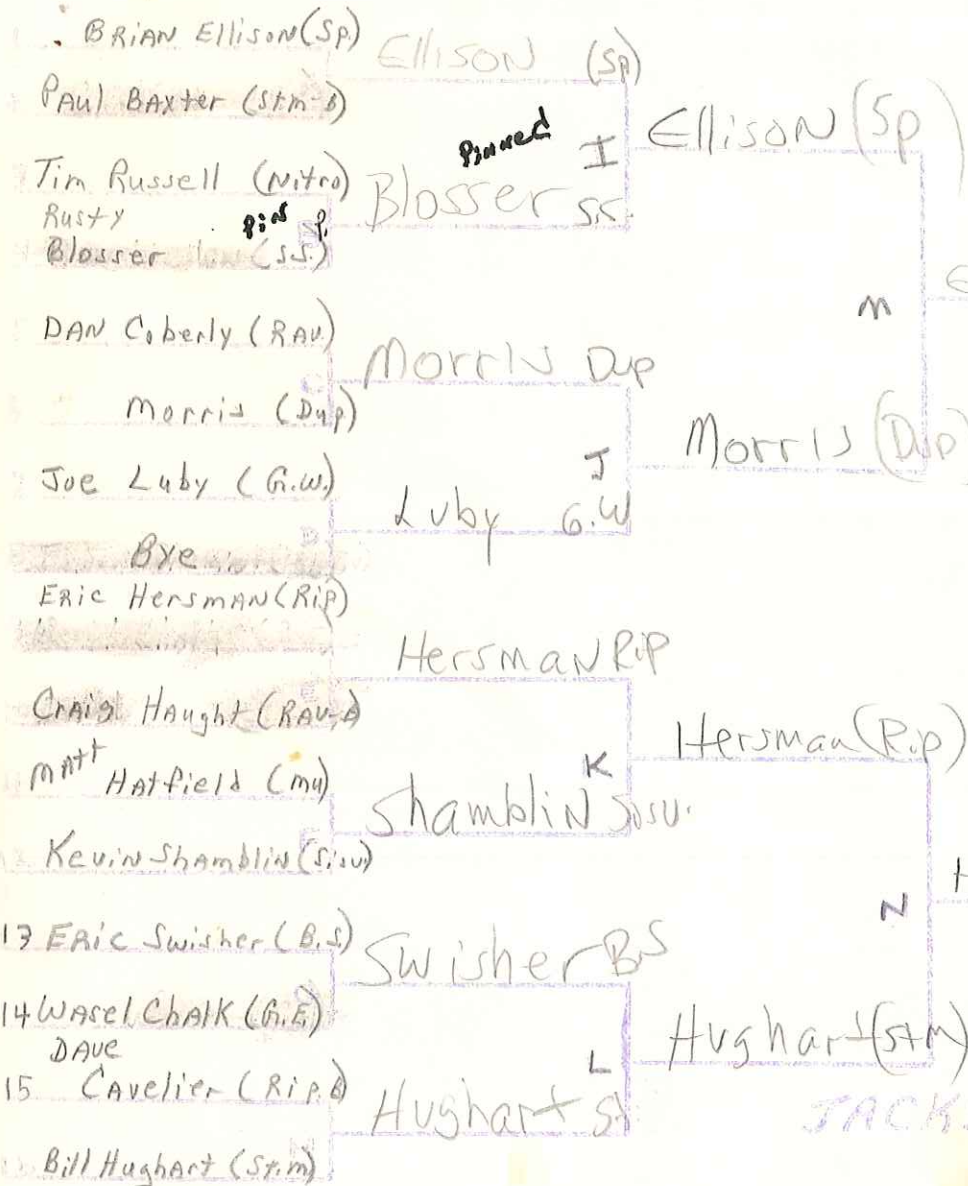 . BRIAN Ellison (Sp.)
PAul BAxter (Stm-B)
Tim Russell (Nitro)
Rusty
Blosser (S.S.)
Pin
DAN Coberly (RAV.)
Morris (Dup)
Joe Luby (G.W.)
Bye
ERic HersmAN (Rip)
CRAig HAught (RAV.B)
MAtt HAtfield (mu)
KeviN ShAmbliN (Sisu)
13 ERic Swisher (B.S.)
14 WAsel ChAlK (G.E)
DAVe
15 CAvelier (Rip.B)
Bill HughArt (St.m)
EllisoN (Sp)
Pinned
I
Blosser S.S.
Morris Dup
J
Luby G.W
HersmaN Rip
K
ShambliN Sisu.
Swisher B.S
L
Hughart St
EllisoN (Sp)
M
Morris (Dup)
Hersman (Rip)
N
Hughart (Stm)
JACK